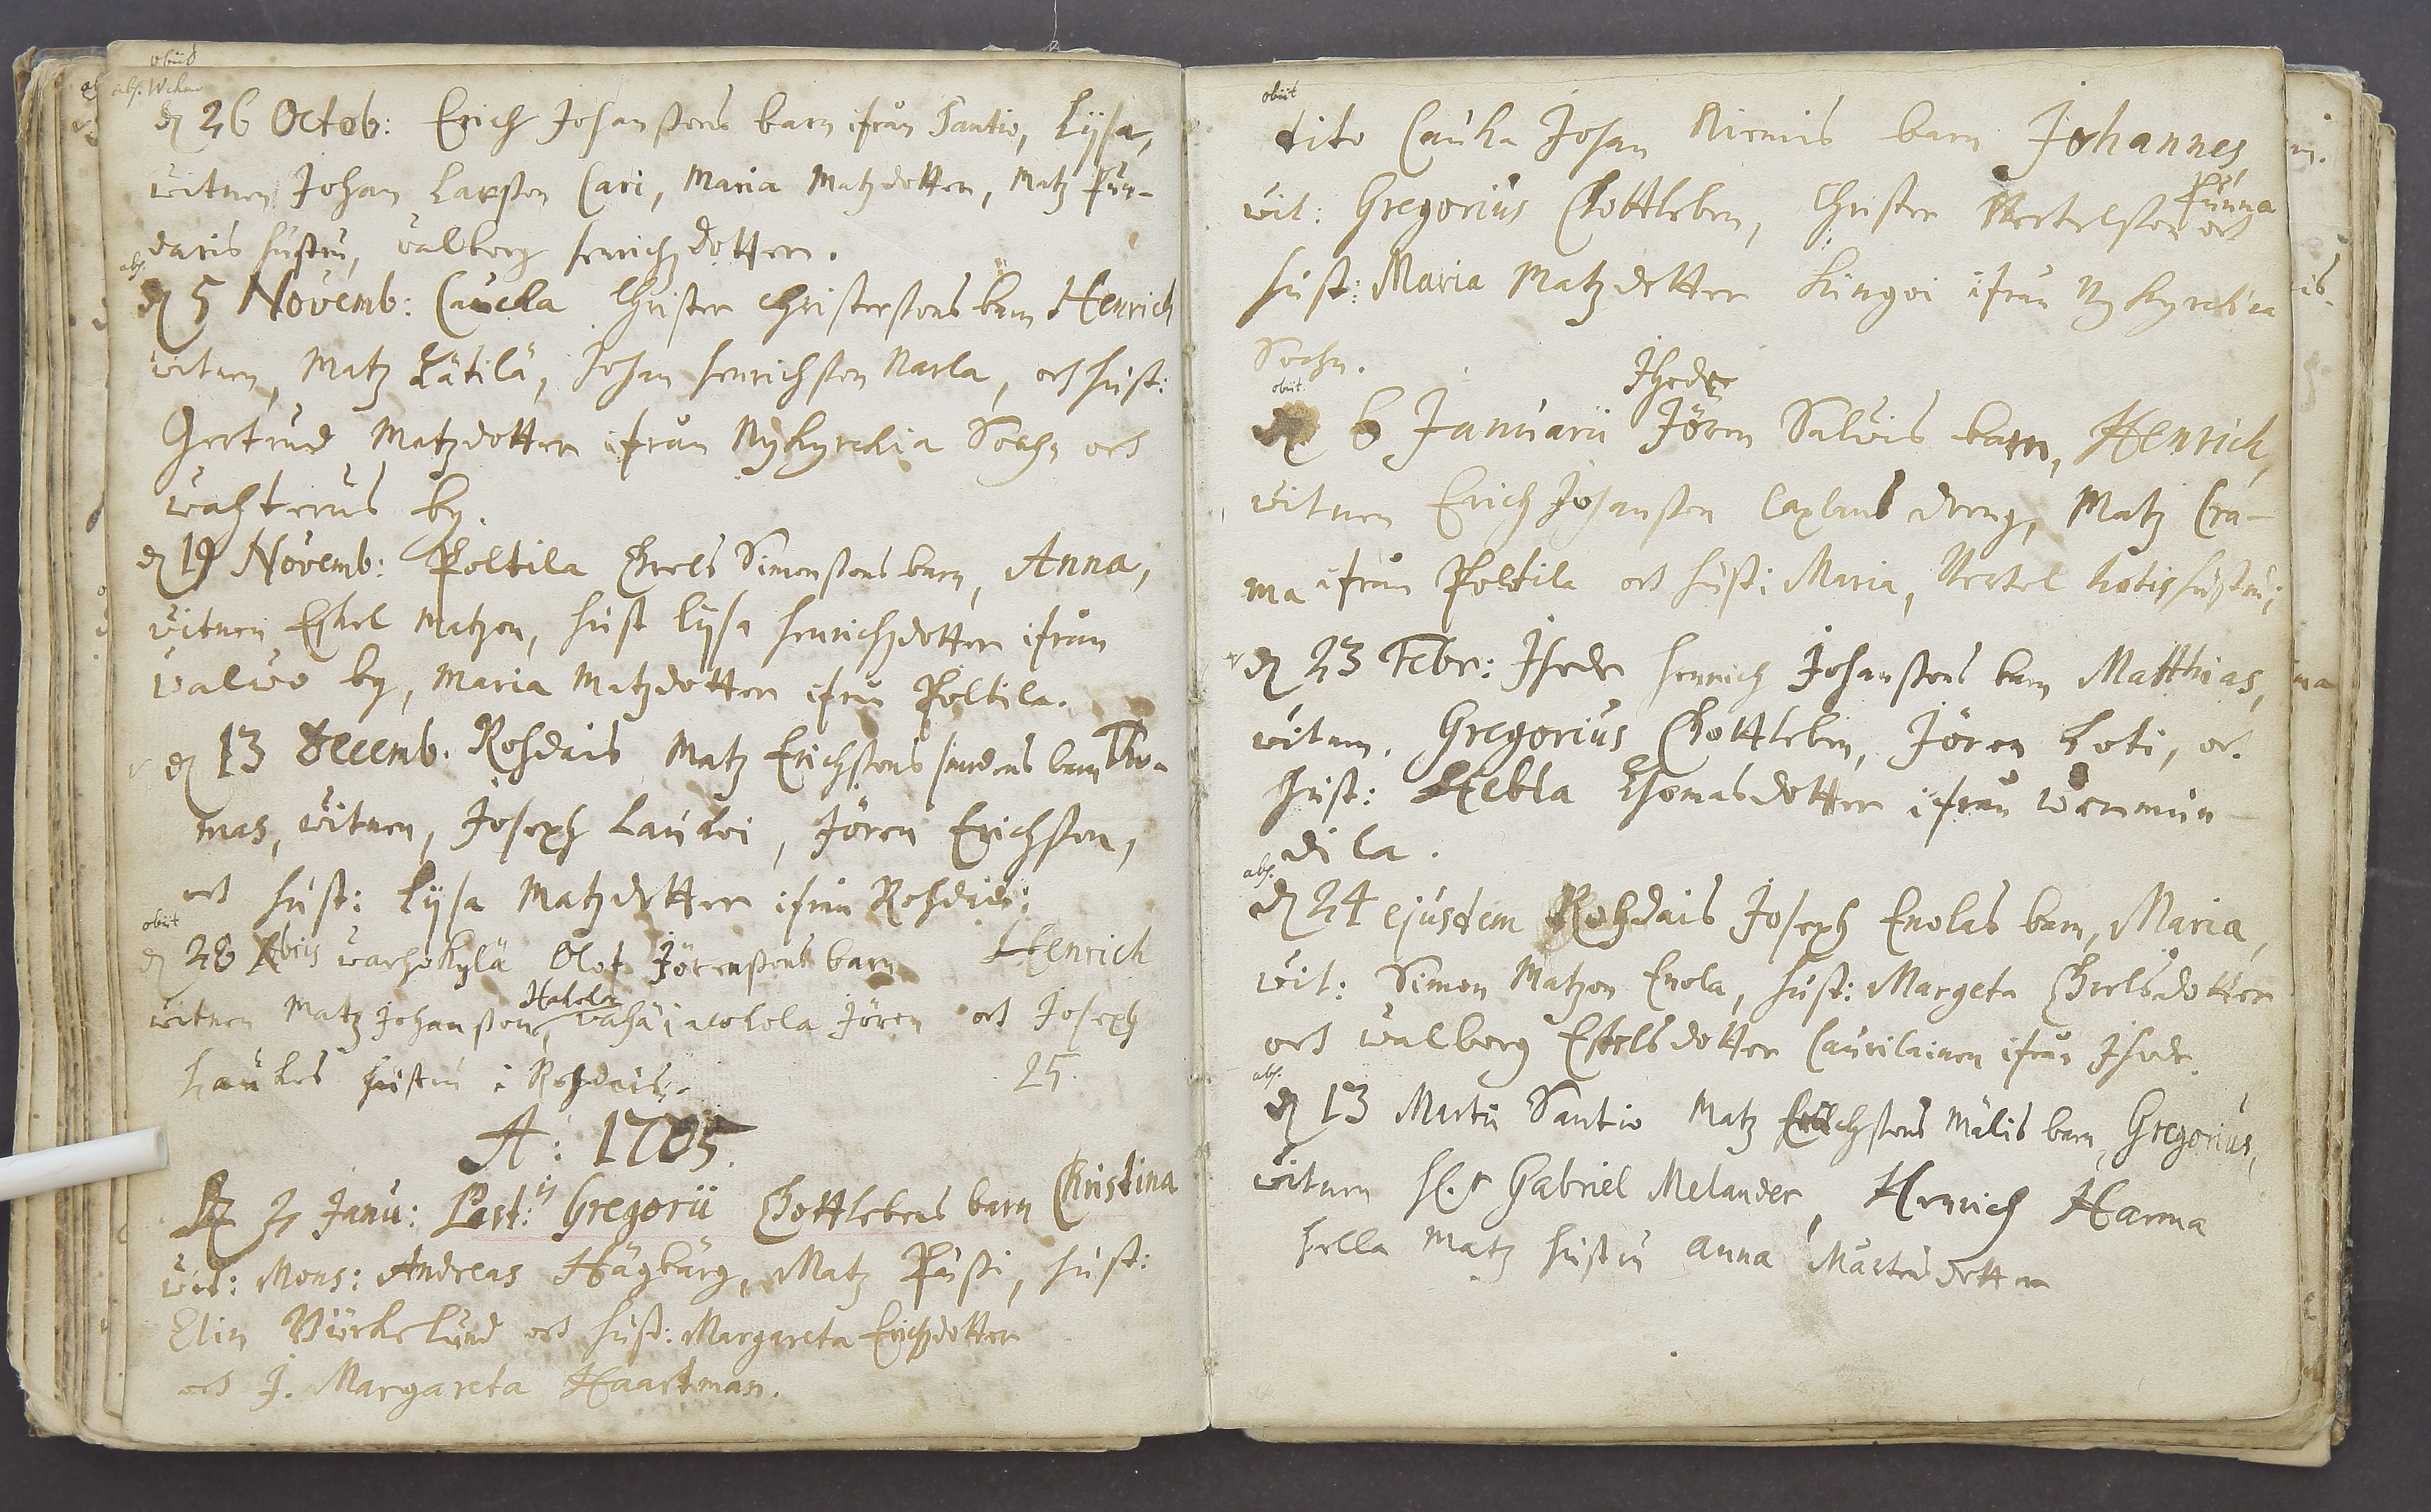 obiit
abs. Wehmo
d 26 Octob: Erich Johanßons barn ifrån Santio, Lijsa,
witnen Johan Larßon Cari, Maria Matzdotter, Matz Pun-
daris hustru, Walborg Henrichzdotter.
abs.
d 5 Novemb: Caucla Christer Christerßons barn Henrich
witnen, Matz Lätilä, Johan Henrichßon Narla, och hust:
Gertrud Matzdotter ifrån Nykyrckia Sochn och
by.
d 19 Novemb: Poltila Thoels Simonßons barn, Anna,
witnen Eskel Matzon, hust Lysa Henrichzdotter ifrån
Walwo by, Maria Matzdotter ifrån Poltila.
d 13 Decemb. Rohdais Matz Erichßons barn Tho-
mas, witnen, Joseph Laukoi, Jören Erichßon,
och hust: Lijsa Matzdotter ifrån Rohdais:
obiit
d 28 Xbris Warhokylä Olof Jörenßons barn Henrich
Hakola
witnen Matz Johanßon, Wähä i acokola Jören och Joseph
Laukos hustru i Rohdais. 25.
A: 1705.
d Janu: Past: Gregorii Gottlebens barn Christina
wit: Mons: Andreas Hägbärg, Matz Pußi, hust:
Elin Biörkelund och hust: Margareta Erichzdotter
och J. Margareta Haartman.
obiit
dito Cauka Johan Niemis barn Johannes,
wit: Gregorius Gottleben, Christer Bertelßon och
Punna
hust: Maria Matzdotter Kungoi ifrån Nykyrckia
Sochn.
obiit Jhode
d 6 Januarii Jören Salvis barn, Henrich,
witnen Erich Johanßon Caplans dreng, Matz Cra-
ma ifrån Poltila och hust: Maria, Bertel Kotis hustru;
d 23 Febr: Jhode Henrich Johanßons barn Matthias,
witnen. Gregorius Gottleben, Jören Loti, och
hust: Hebla Thomasdotter ifrån Wermun-
dila.
abs.
d 24 ejusdem Rohdais Joseph Enolas barn, Maria,
wit: Simon Matzon Enola, hust: Margeta Thoelsdotter
och Walborg Eskelsdotter Caurilainen ifrån Jhode.
abs.
d 13 Martii Santio Matz Erichßons Mälis barn, Gregorius,
witnen H.r Gabriel Melander, Henrich Harma
hella Matz hustru Anna Mårtensdotter